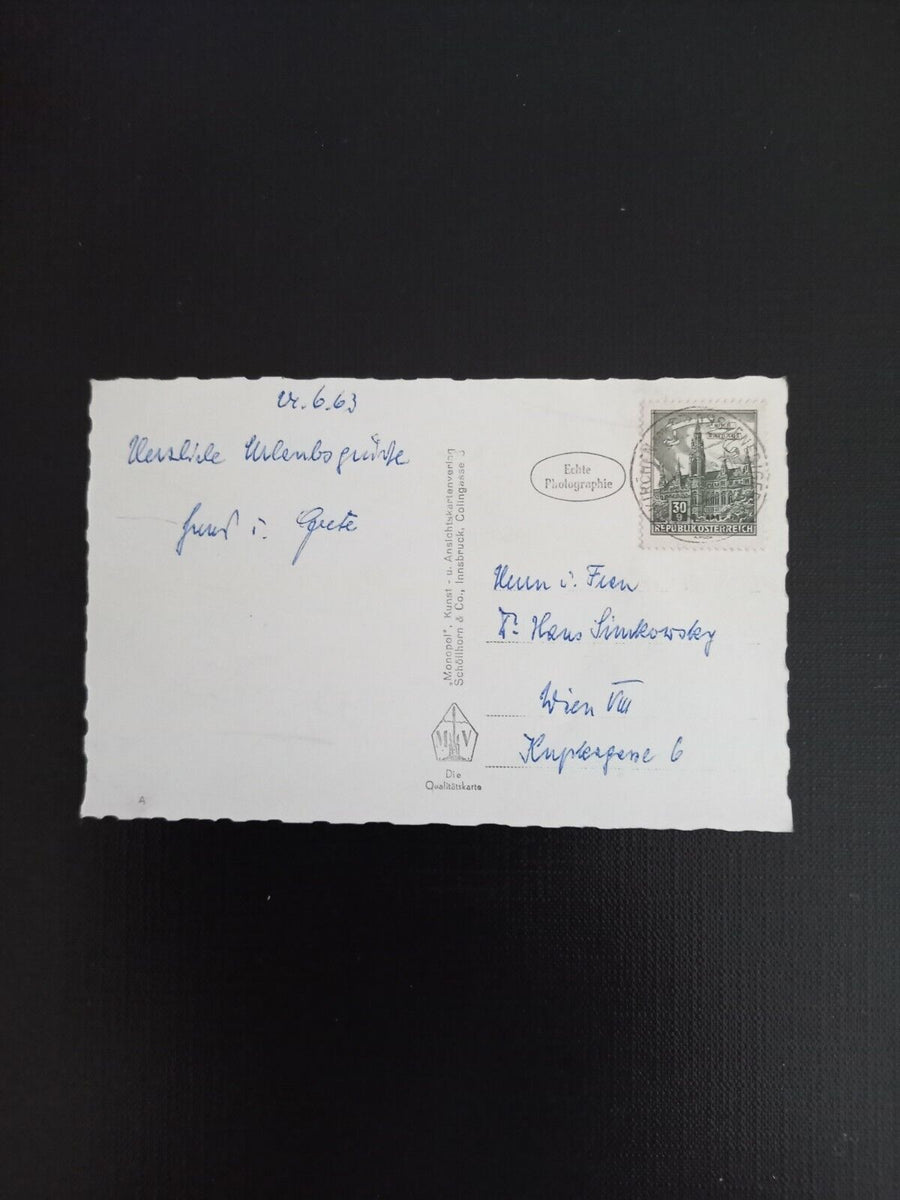 6.63
Herzliche Urlaubsgrüße
u. Grete
"Monopol", Kunst- u. Ansichtskartenverlag
Schöllhorn & Co., Innsbruck, Colingasse 3
M V
Die
Qualitätskarte
A
Echte
Photographie
30 g
REPUBLIK ÖSTERREICH
Herrn u. Frau
Dr. Hans Simkowsky
Wien VIII
6